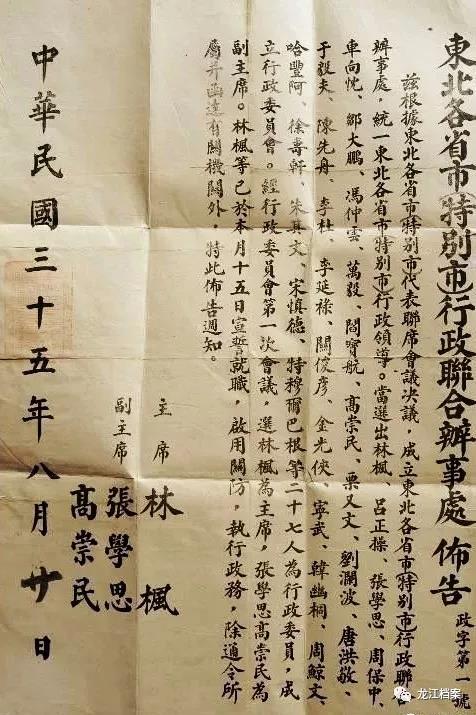 東北各省市特別市行政聯合辦事處佈告
政字第一號
茲根據東北各省市特別市代表聯席會議決議，成立東北各省市特別市行政聯合
辦事處，統一東北各省市特別市行政領導。當選出林楓、呂正操、張學思、周保中、
車向忱、鄒大鵬、馮仲雲、萬毅、閻寶航、高崇民、栗又文、劉瀾波、唐洪敬、
于毅夫、陳先舟、李杜、李延祿、關俊彥、金光俠、寧武、韓幽桐、周鯨文、
哈豐阿、徐壽軒、朱其文、宋慎德、特穆爾巴根等二十七人為行政委員，成
立行政委員會。經行政委員會第一次會議選林楓為主席，張學思高崇民為
副主席。林楓等已於本月十五日宣誓就職，啟用關防，執行政務，除通令所
屬并函達有關機關外，特此佈告週知。
主席 林楓
副主席 張學思
高崇民
中華民國三十五年八月廿日
龙江档案